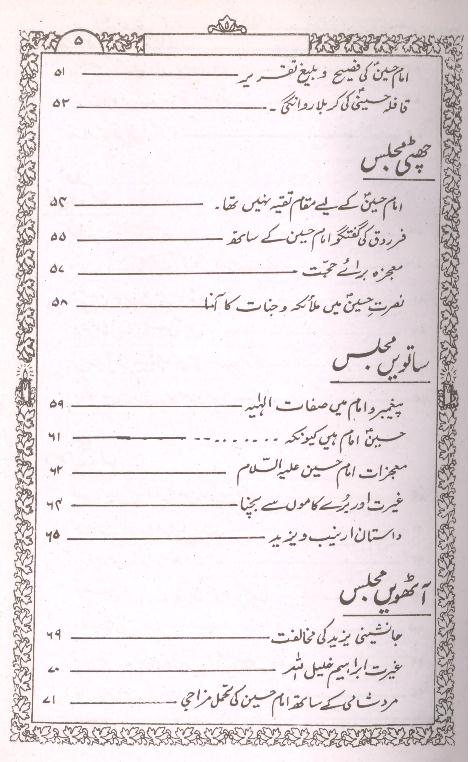 ۵
امام حسینؑ کی فصیح و بلیغ تقریر ۵۱
قافلہ حسینیؑ کی کربلا روانگی۔ ۵۲
چھٹی مجلس
امام حسینؑ کے لیے مقام تقیہ نہیں تھا۔ ۵۴
فرزدق کی گفتگو امام حسین کے ساتھ ۵۵
معجزہ برائے حجّت ۵۷
نصرتِ حسینؑ میں ملائکہ و جنات کا آنا ۵۸
ساتویں مجلس
پیغمبر و امام میں صفات الہٰیہ ۵۹
حسینؑ امام ہیں کیونکہ ......... ۶۱
معجزات امام حسین علیہ السّلام ۶۲
غیرت اور بُرے کاموں سے بچنا ۶۴
داستان ارینب و یزید ۶۵
آٹھویں مجلس
جانشینی یزید کی مخالفت ۶۹
غیرت ابراہیم خلیل اللہ ۷۰
مرد شامی کے ساتھ امام حسین کی تحمل مزاجی ۷۱